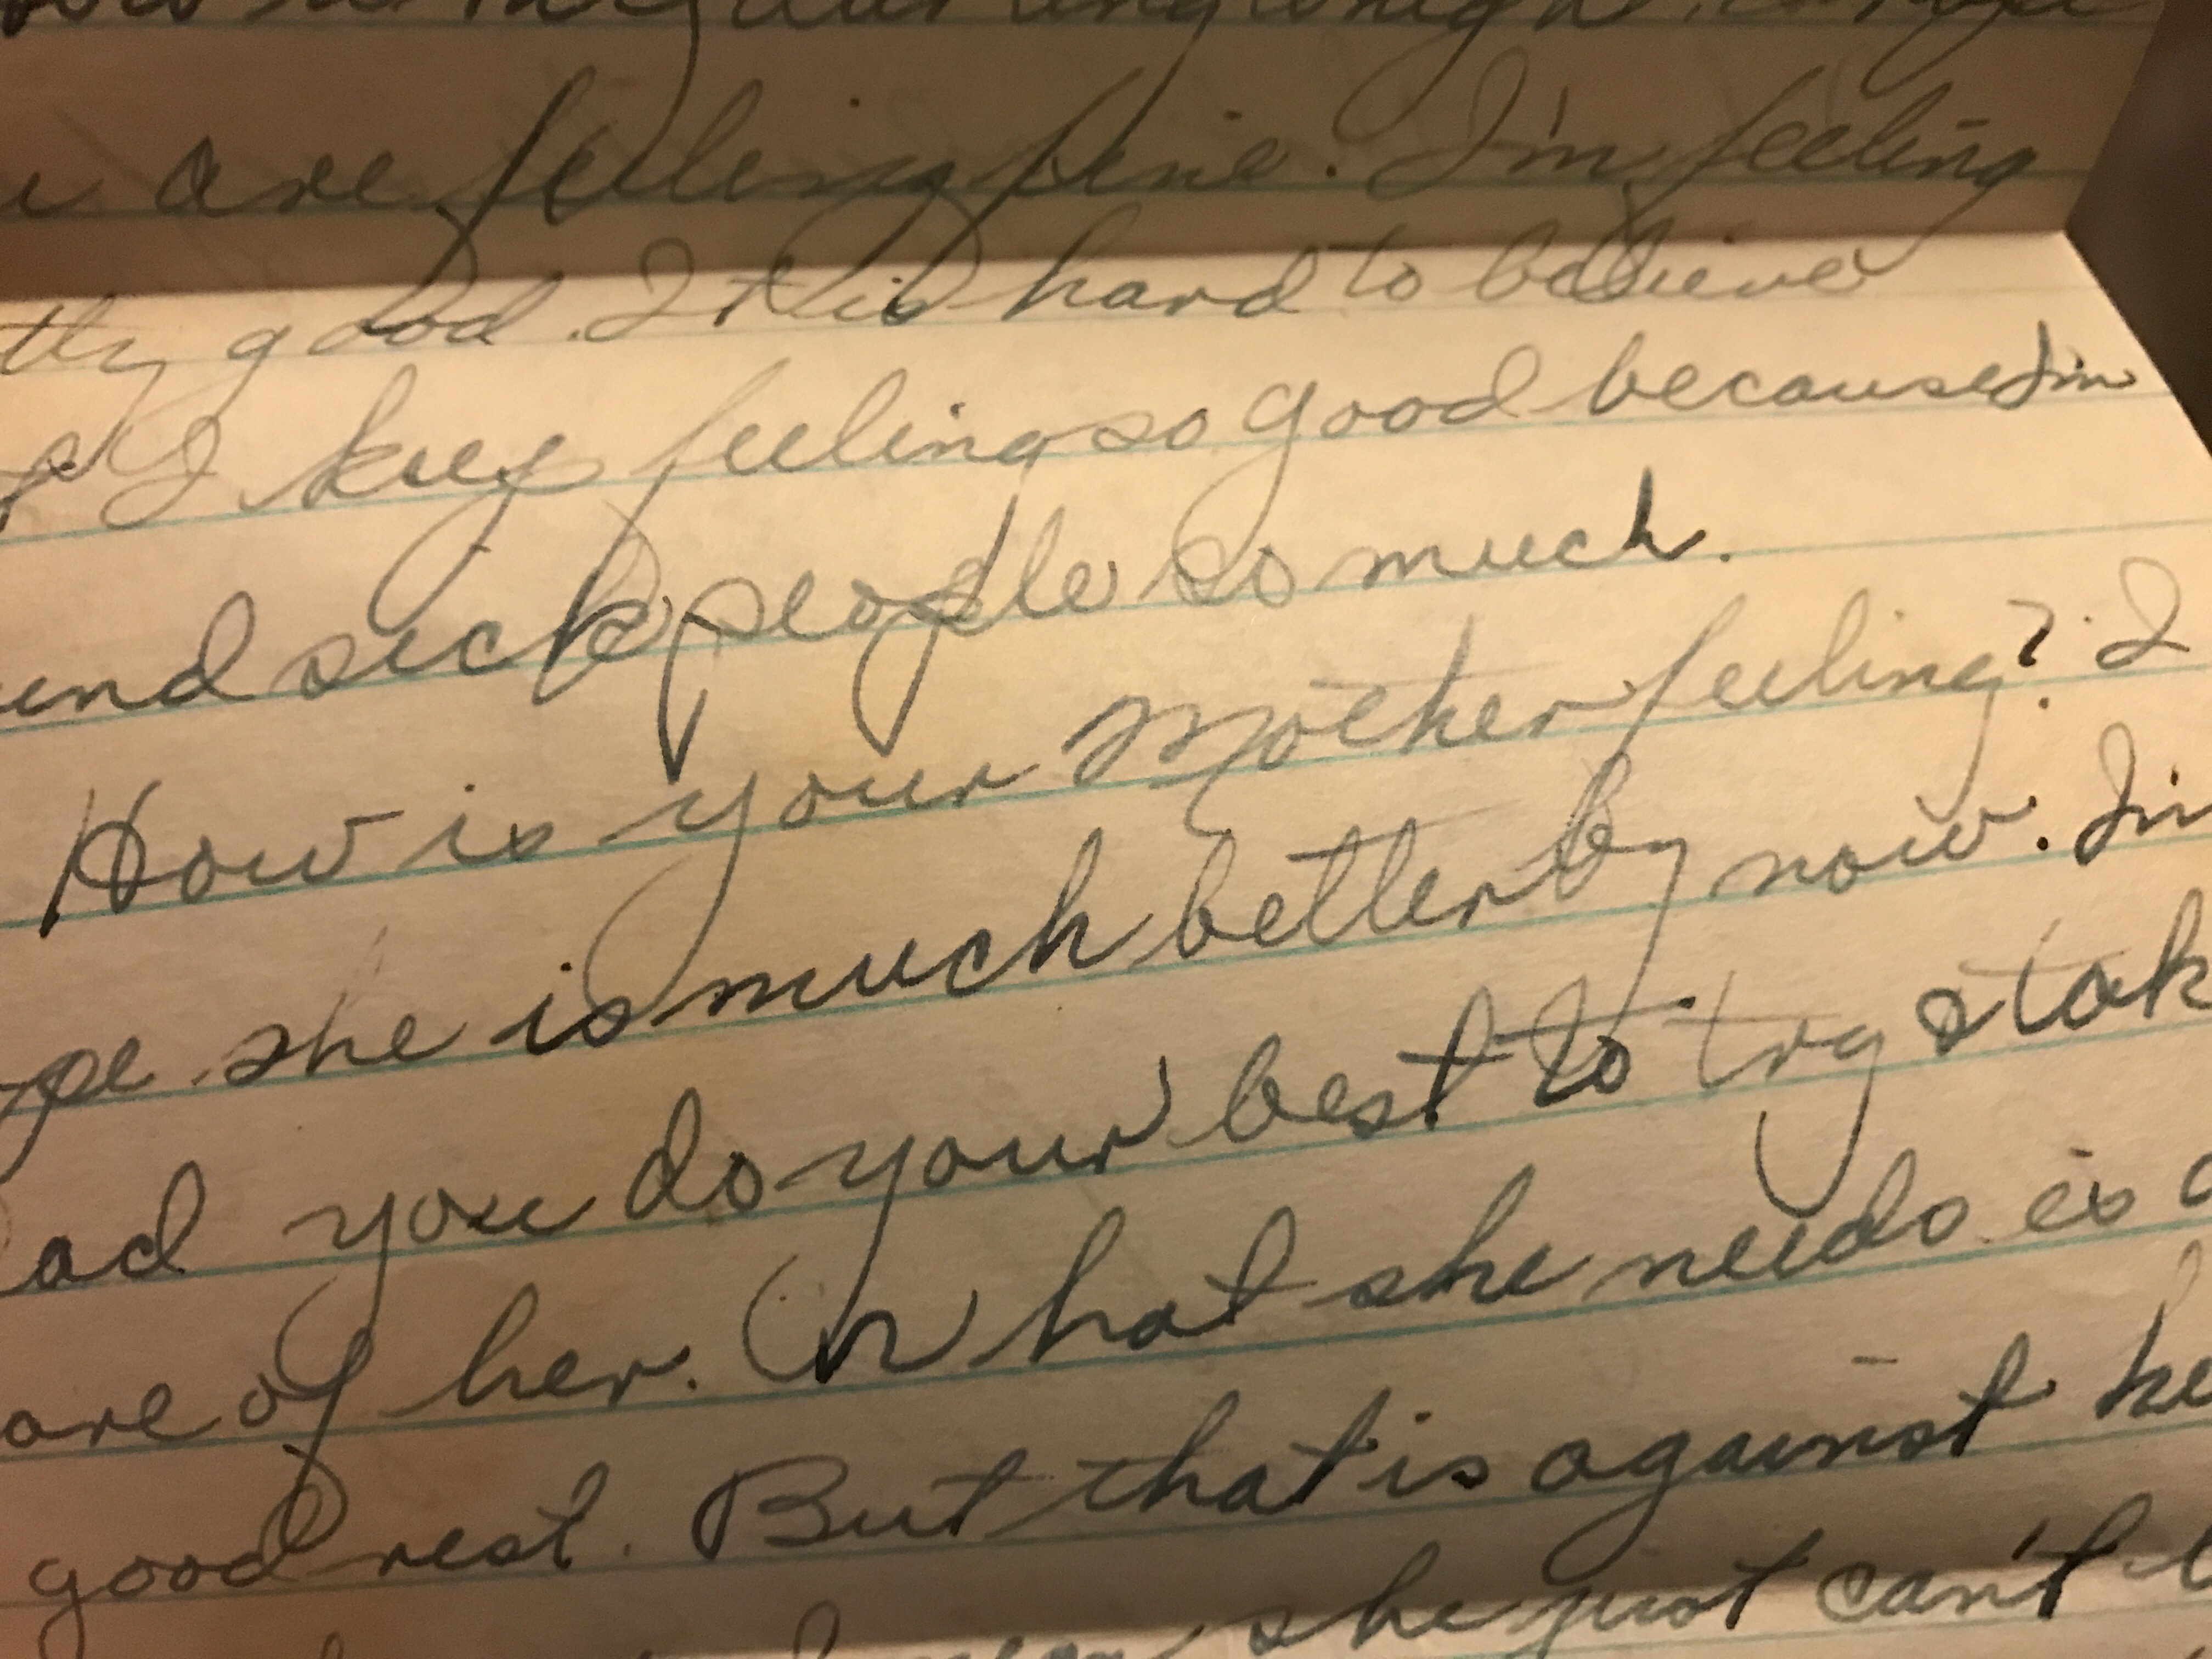 are feeling fine. I'm feeling
good. It is hard to believe
I keep feeling so good because I'm
sick people so much.
How is your Mother feeling? I
she is much better by now. I'm
you do your best to try & tak
of her. What she needs is a
good rest. But that is against he
she just can't